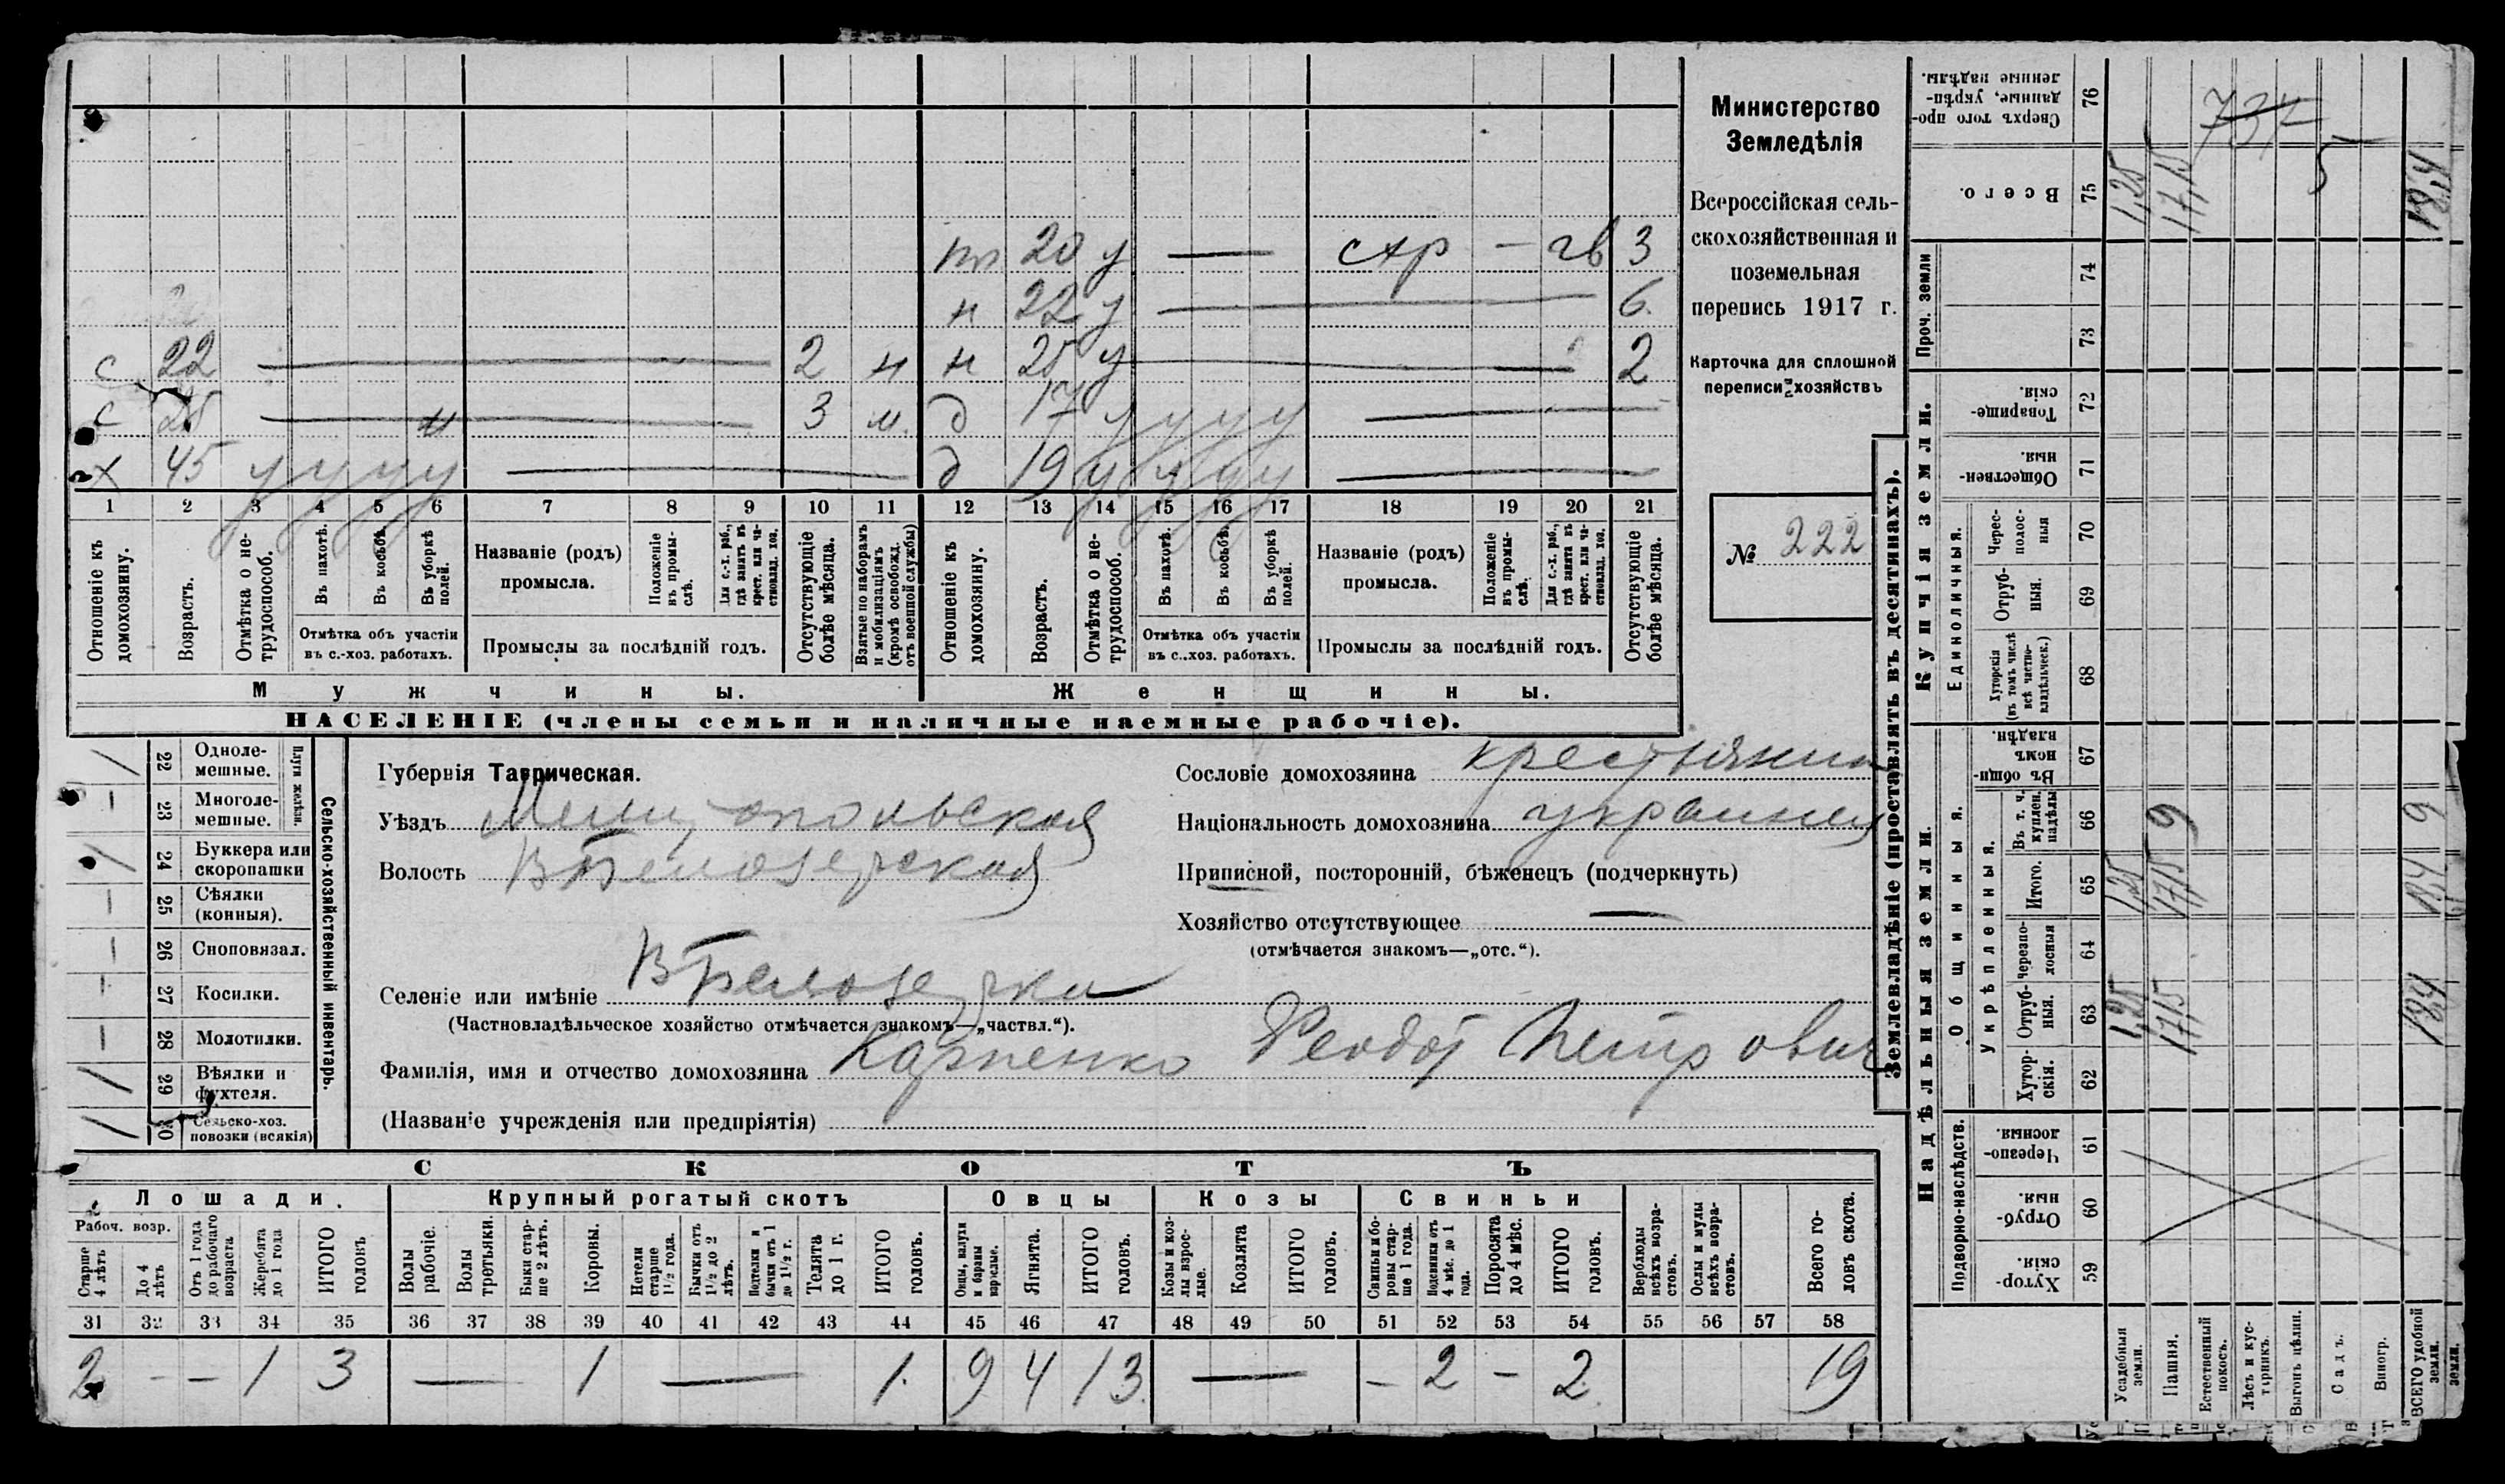 Министерство
Земледѣлія
Всероссійская сель-
скохозяйственная и
поземельная
перепись 1917 г.
Карточка для сплошной
переписи хозяйствъ
№ 222
20 у — — гв 3
н 22 у — 6
с 22 — 2 н н 25 у — 2
с 25 — 3 м. д 17 у у у у —
х 45 у у у у — д 19 у у у у —
1 2 3 4 5 6 7 8 9 10 11 12 13 14 15 16 17 18 19 20 21
Отношеніе къ домохозяину.
Возрастъ.
Отмѣтка о не-трудоспособ.
Въ пахотѣ.
Въ косьбѣ.
Въ уборкѣ полей.
Отмѣтка объ участіи
въ с.-хоз. работахъ.
Названіе (родъ)
промысла.
Положеніе въ промы-слѣ.
Для с.-х. раб., гдѣ занятъ въ крест. или ча-стновлад. хоз.
Промыслы за послѣдній годъ.
Отсутствующіе болѣе мѣсяца.
Взятые по наборамъ и мобилизаціямъ (кромѣ освобожд. отъ военной службы)
Отношеніе къ домохозяину.
Возрастъ.
Отмѣтка о не-трудоспособ.
Въ пахотѣ.
Въ косьбѣ.
Въ уборкѣ полей.
Отмѣтка объ участіи
въ с..хоз. работахъ.
Названіе (родъ)
промысла.
Положеніе въ промы-слѣ.
Для с.-х. раб., гдѣ занята въ крест. или ча-стновлад. хоз.
Промыслы за послѣдній годъ.
Отсутствующіе болѣе мѣсяца.
Мужчины. Женщины.
НАСЕЛЕНІЕ (члены семьи и наличные наемные рабочіе).
Сельско-хозяйственный инвентарь.
Плуги желѣзн.
/ 22 Одноле-мешные.
— 23 Многоле-мешные.
/ 24 Буккера или скоропашки
— 25 Сѣялки (конныя).
— 26 Сноповязал.
— 27 Косилки.
— 28 Молотилки.
/ 29 Вѣялки и фухтеля.
/ 30 Сельско-хоз. повозки (всякія)
Губернія Таврическая.
Уѣздъ Мелитопольская
Волость В Белозерская
Селеніе или имѣніе В Белозерка
(Частновладѣльческое хозяйство отмѣчается знакомъ—„частвл.“).
Фамилія, имя и отчество домохозяина Карпенко Феодот Петрович
(Названіе учрежденія или предпріятія)
Сословіе домохозяина крестьянин
Національность домохозяина украинец
Приписной, посторонній, бѣженецъ (подчеркнуть)
Хозяйство отсутствующее —
(отмѣчается знакомъ—„отс.“).
СКОТЪ
Лошади. Крупный рогатый скотъ Овцы Козы Свиньи
Рабоч. возр.
Старше 4 лѣтъ
До 4 лѣтъ
Отъ 1 года до рабочаго возраста
Жеребята до 1 года
ИТОГО головъ
Волы рабочіе.
Волы третьяки.
Быки стар-ше 2 лѣтъ.
Коровы.
Нетели старше 1 1/2 года.
Бычки отъ 1 1/2 до 2 лѣтъ.
Подтелки и бычки отъ 1 до 1 1/2 г.
Телята до 1 г.
ИТОГО головъ.
Овцы, валухи и бараны взрослые.
Ягнята.
ИТОГО головъ.
Козы и коз-лы взрос-лые.
Козлята
ИТОГО головъ.
Свиньи и бо-ровы стар-ше 1 года.
Подсвинки отъ 4 мѣс. до 1 года.
Поросята до 4 мѣс.
ИТОГО головъ.
Верблюды всѣхъ возра-стовъ.
Ослы и мулы всѣхъ возра-стовъ.
Всего го-ловъ скота.
31 32 33 34 35 36 37 38 39 40 41 42 43 44 45 46 47 48 49 50 51 52 53 54 55 56 57 58
2 - - 1 3 — 1 — 1. 9 4 13. — - 2 - 2 19
Землевладѣніе (проставлять въ десятинахъ).
Купчія земли.
Надѣльныя земли.
Проч. земли
Единоличныя.
Общинныя.
Укрѣпленныя.
Подворно-наслѣдств.
76 Сверхъ того про-данные, укрѣп-ленные надѣлы. 737
75 Всего. 1,25 17,15 5 18,4
74
73
72 Товарище-скія.
71 Обществен-ныя.
70 Черес-полос-ныя
69 Отруб-ныя.
68 Хуторскія (въ томъ числѣ всѣ частно-владѣльческ.)
67 Въ общин-номъ владѣн.
66 Въ т. ч. куплен. надѣлы 9 9
65 Итого. 1,25 17,15 18,4
64 Черезпо-лосныя
63 Отруб-ныя. 1,25 17,15 18,4
62 Хутор-скія.
61 Черезпо-лосныя.
60 Отруб-ныя.
59 Хутор-скія.
Усадебныя земли.
Пашня.
Естественный покосъ.
Лѣсъ и кус-тарникъ.
Выгонъ цѣлин.
Садъ.
Виногр.
ВСЕГО удобной земли.
земли.